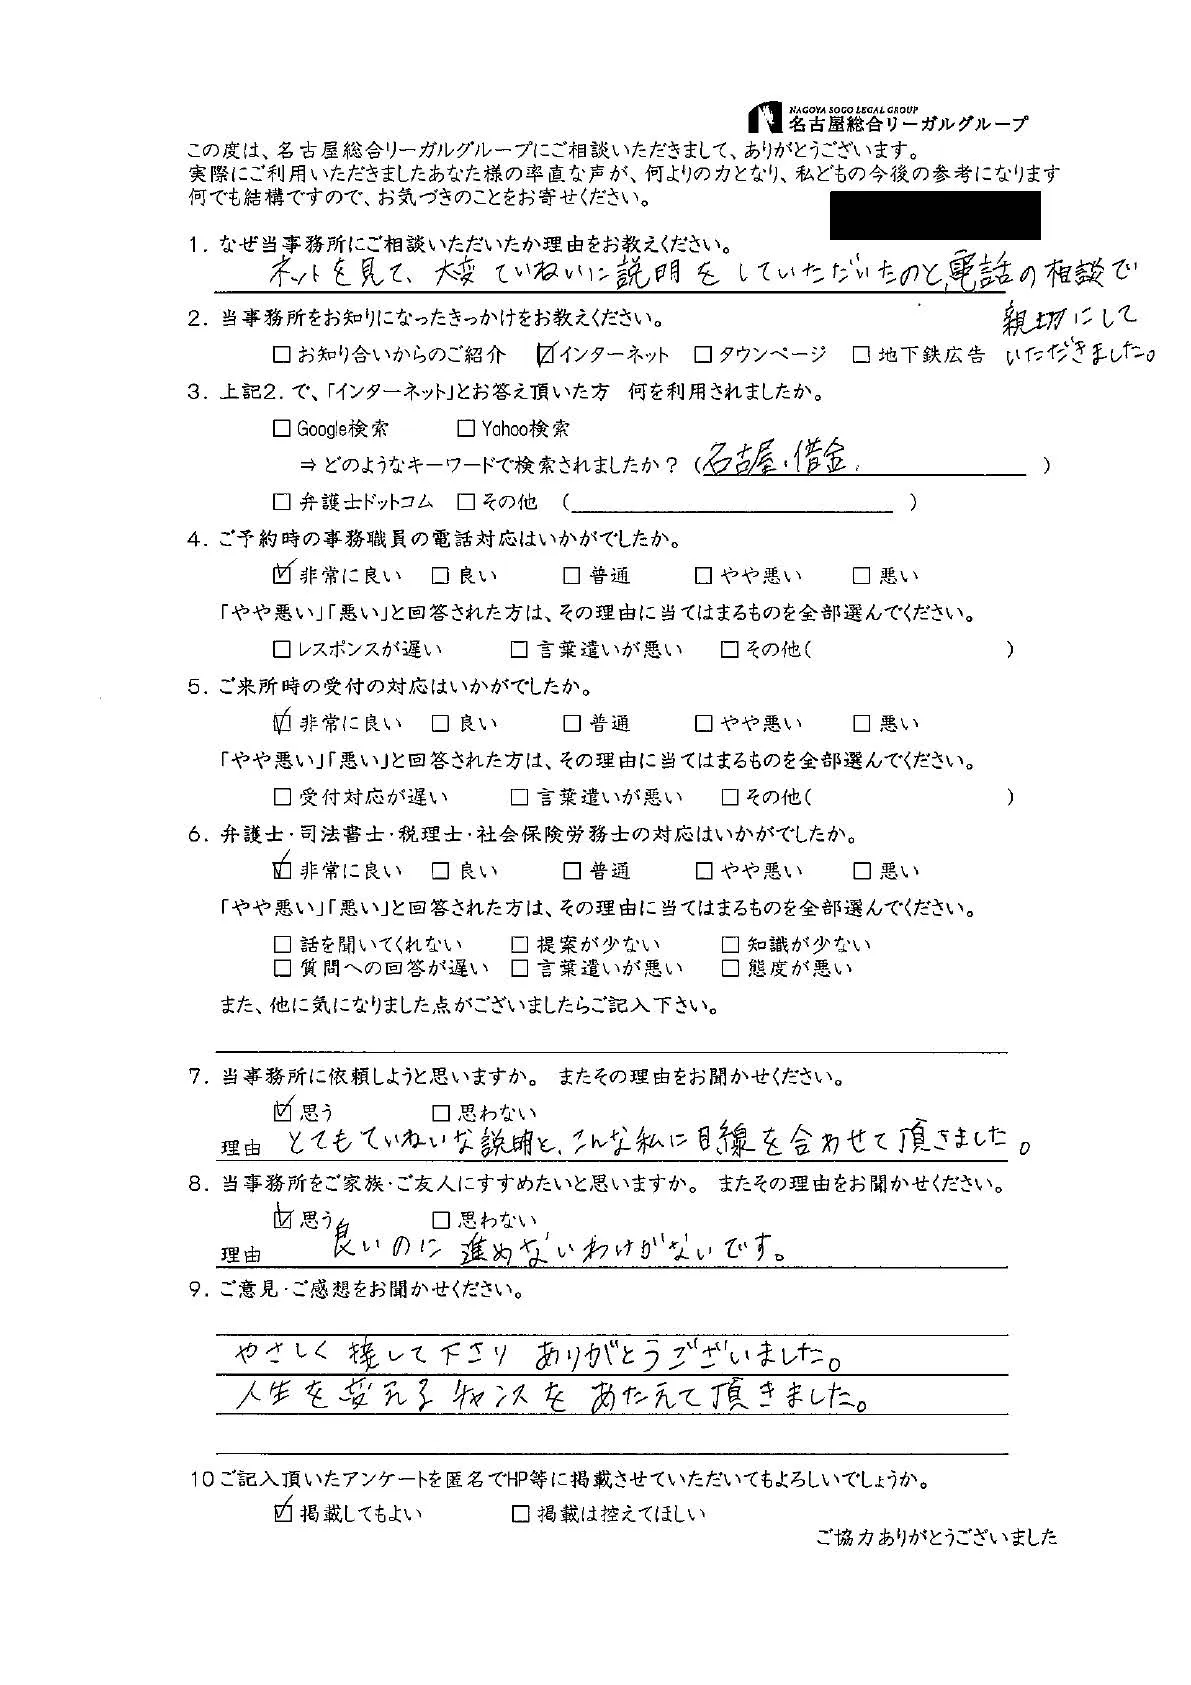 NAGOYA SOGO LEGAL GROUP
名古屋総合リーガルグループ
この度は、名古屋総合リーガルグループにご相談いただきまして、ありがとうございます。
実際にご利用いただきましたあなた様の率直な声が、何よりの力となり、私どもの今後の参考になります
何でも結構ですので、お気づきのことをお寄せください。
1. なぜ当事務所にご相談いただいたか理由をお教えください。
ネットを見て、大変ていねいに説明をしていただいたのと、電話の相談で
親切にして
いただきました。
2. 当事務所をお知りになったきっかけをお教えください。
□お知り合いからのご紹介 ☑インターネット □タウンページ □地下鉄広告
3. 上記2. で、「インターネット」とお答え頂いた方 何を利用されましたか。
□Google検索 □Yahoo検索
⇒どのようなキーワードで検索されましたか？（名古屋・借金、）
□弁護士ドットコム □その他（ ）
4. ご予約時の事務職員の電話対応はいかがでしたか。
☑非常に良い □良い □普通 □やや悪い □悪い
「やや悪い」「悪い」と回答された方は、その理由に当てはまるものを全部選んでください。
□レスポンスが遅い □言葉遣いが悪い □その他( )
5. ご来所時の受付の対応はいかがでしたか。
☑非常に良い □良い □普通 □やや悪い □悪い
「やや悪い」「悪い」と回答された方は、その理由に当てはまるものを全部選んでください。
□受付対応が遅い □言葉遣いが悪い □その他( )
6. 弁護士・司法書士・税理士・社会保険労務士の対応はいかがでしたか。
☑非常に良い □良い □普通 □やや悪い □悪い
「やや悪い」「悪い」と回答された方は、その理由に当てはまるものを全部選んでください。
□話を聞いてくれない □提案が少ない □知識が少ない
□質問への回答が遅い □言葉遣いが悪い □態度が悪い
また、他に気になりました点がございましたらご記入下さい。
7. 当事務所に依頼しようと思いますか。 またその理由をお聞かせください。
☑思う □思わない
理由 とてもていねいな説明と、こんな私に目線を合わせて頂きました。
8. 当事務所をご家族・ご友人にすすめたいと思いますか。 またその理由をお聞かせください。
☑思う □思わない
理由 良いのに進めないわけがないです。
9. ご意見・ご感想をお聞かせください。
やさしく接して下さり ありがとうございました。
人生を変えるチャンスを あたえて頂きました。
10ご記入頂いたアンケートを匿名でHP等に掲載させていただいてもよろしいでしょうか。
☑掲載してもよい □掲載は控えてほしい
ご協力ありがとうございました